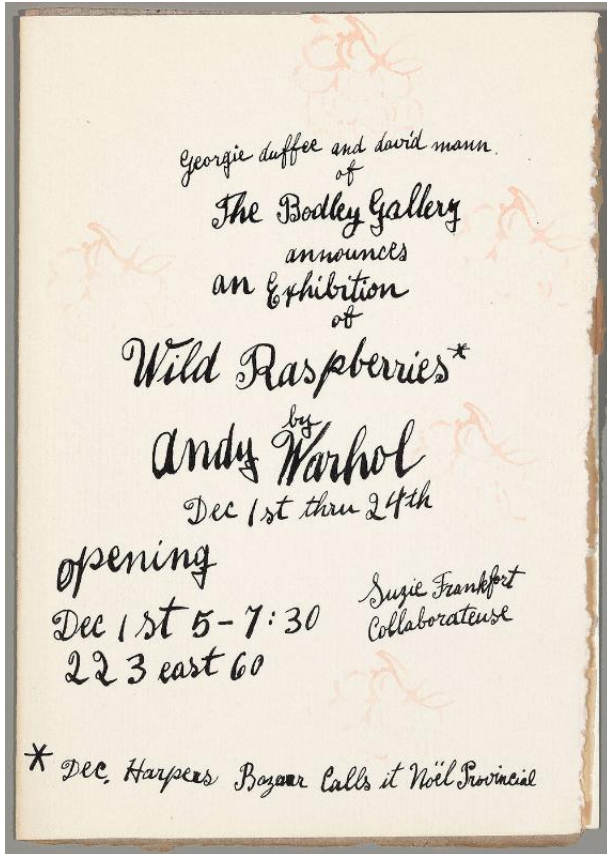 Georgie duffee and david mann.
of
The Bodley Gallery
announces
an Exhibition
of
Wild Raspberries*
by
Andy Warhol
Dec 1st thru 24th
opening
Dec 1st 5-7:30
223 east 60
Suzie Frankfort
Collaborateuse
* Dec. Harpers Bazaar Calls it Noël Provincial